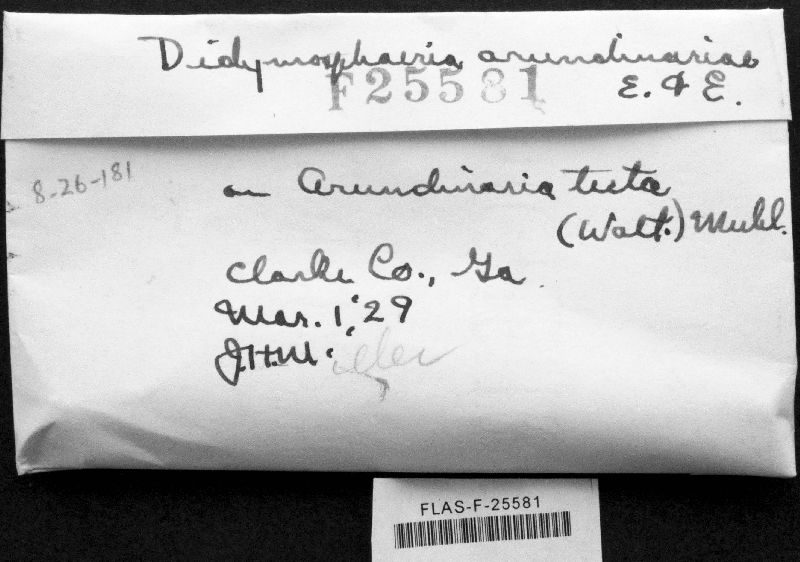 Didymosphaeria arundinariae
F25581 E. & E.
8-26-181
on Arundinaria tecta
(Walt.) Muhl.
Clarke Co., Ga.
Mar. 1, '29
J.H.M. iller
FLAS-F-25581